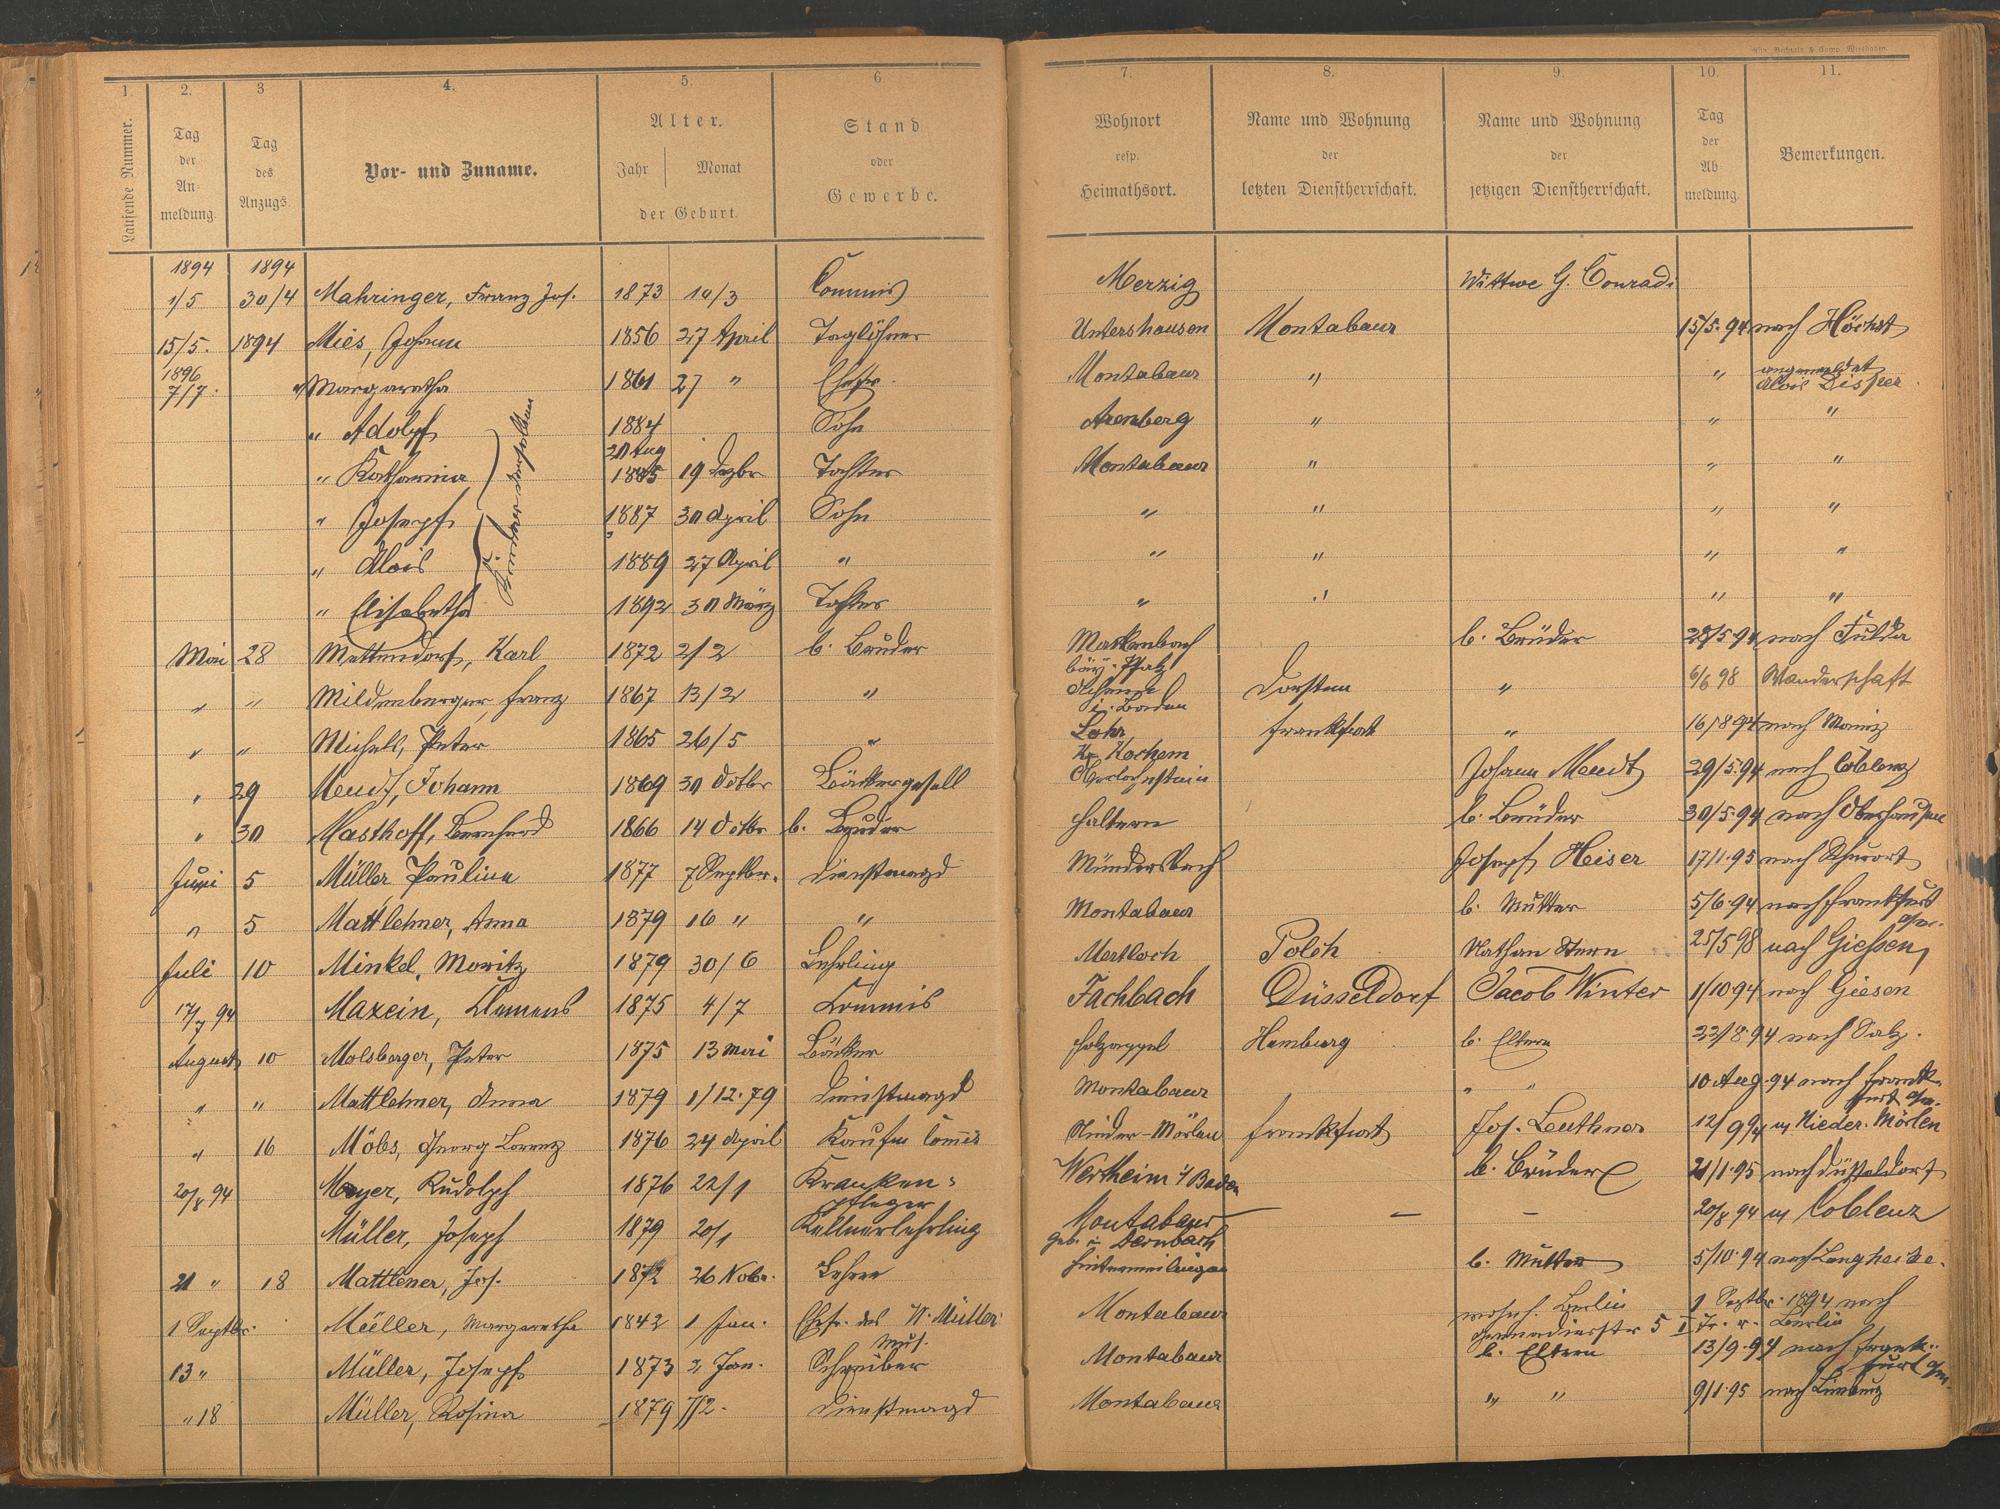 1. 2. 3 4. 5. 6. 7. 8. 9. 10. 11.
Laufende Nummer. Tag der Anmeldung. Tag des Anzugs. Vor- und Zuname. Alter. Jahr Monat der Geburt. Stand oder Gewerbe. Wohnort resp. Heimathsort. Name und Wohnung der letzten Dienstherrschaft. Name und Wohnung der jetzigen Dienstherrschaft. Tag der Abmeldung. Bemerkungen.
1894 1894
1/5 30/4 Mahringer, Franz Jos. 1873 10/3 Commis Merzig Wittwe G. Conradi
15/5. 1894 Mies, Johann 1856 27 April Taglöhner Untershausen Montabaur 15/5.94 nach Höchst
1896
7/7. " Margaretha 1861 27 " Ehefr. Montabaur " " angemeldet Alois Disper
" Adolf 1884 Sohn Arenberg " " "
20 Aug
" Katharina 1885 19 Dezbr Tochter Montabaur " " "
" Joseph 1887 30 April Sohn " " " "
" Alois 1889 27 April " " " " "
" Elisabetha 1892 30 März Tochter " " " "
Kinder derselben
Mai 28 Mettendorf, Karl 1872 2/2 b. Bruder Mackenbach bay. Pfalz b. Brüder 28/5.94 nach Fulda
" " Mildenberger, Franz 1867 13/2 " i. Baden Dorsten " 6/6 98 Wanderschaft
" " Michels, Peter 1865 26/5 " Lohr Kr. Kochem Frankfurt " 16/8 94 nach Mainz
" 29 Mendt, Johann 1869 30 Octbr Bäckergesell Oberlahnstein Johann Mendt 29/5.94 nach Coblenz
" 30 Masthoff, Bernhard 1866 14 Octbr b. Bruder Haltern b. Brüder 30/5.94 nach Oberhausen
Juni 5 Müller Pauline 1877 7 Septbr. Dienstmagd Mündersbach Joseph Heiser 17/1.95 nach Ruhrort
" 5 Mattlehner, Anna 1879 16 " " Montabaur b. Mutter 5/6.94 nach Frankfurt a/m.
Juli 10 Minkel, Moritz 1879 30/6 Lehrling Mertloch Polch Nathan Stern 25/5 98 nach Giessen,
17/7 94 Maxein, Clemens 1875 4/7 Commis Fachbach Düsseldorf Jacob Winter 1/10 94 nach Giesen
August 10 Molsberger, Peter 1875 13 Mai Bäcker Holzappel Hamburg b. Eltern 22/8.94 nach Salz.
" " Mattlehner, Anna 1879 1/12.79 Dienstmagd Montabaur " " 10 Aug.94 nach Frankfurt a/m.
" 16 Möbs, Georg Lorenz 1876 24 April Kaufm Commis Nieder-Mörlen Frankfurt Jos. Leuthner 12/9 94 n Nieder.Mörlen
20/8 94 Meyer, Rudolph 1876 22/1 Krankenpfleger Wertheim i/ Baden b. Brüder 21/1.95 nach Düsseldorf
Müller, Joseph 1879 20/1 Kellnerlehrling Montabaur geb. in Dernbach – – 20/8 94 n Coblenz
21 " 18 Mattlener, Jos. 1872 26 Nobr. Lehrer Hintermeilingen b. Mutter 5/10.94 nach Langhecke.
1 Septbr. Müller, Margaretha 1842 1 Jan. Ehefr. des W. Müller Mus. Montabaur wohnh. Berlin Grenadierstr 5 I 1 Septbr. 1894 nach Berlin
13 " Müller, Joseph 1873 2 Jan. Schreiber Montabaur b. Eltern 13/9.94 nach Frankfurt a/m.
" 18 Müller, Rosina 1879 7/2. Dienstmagd Montabaur " " 9/1.95 nach Limburg